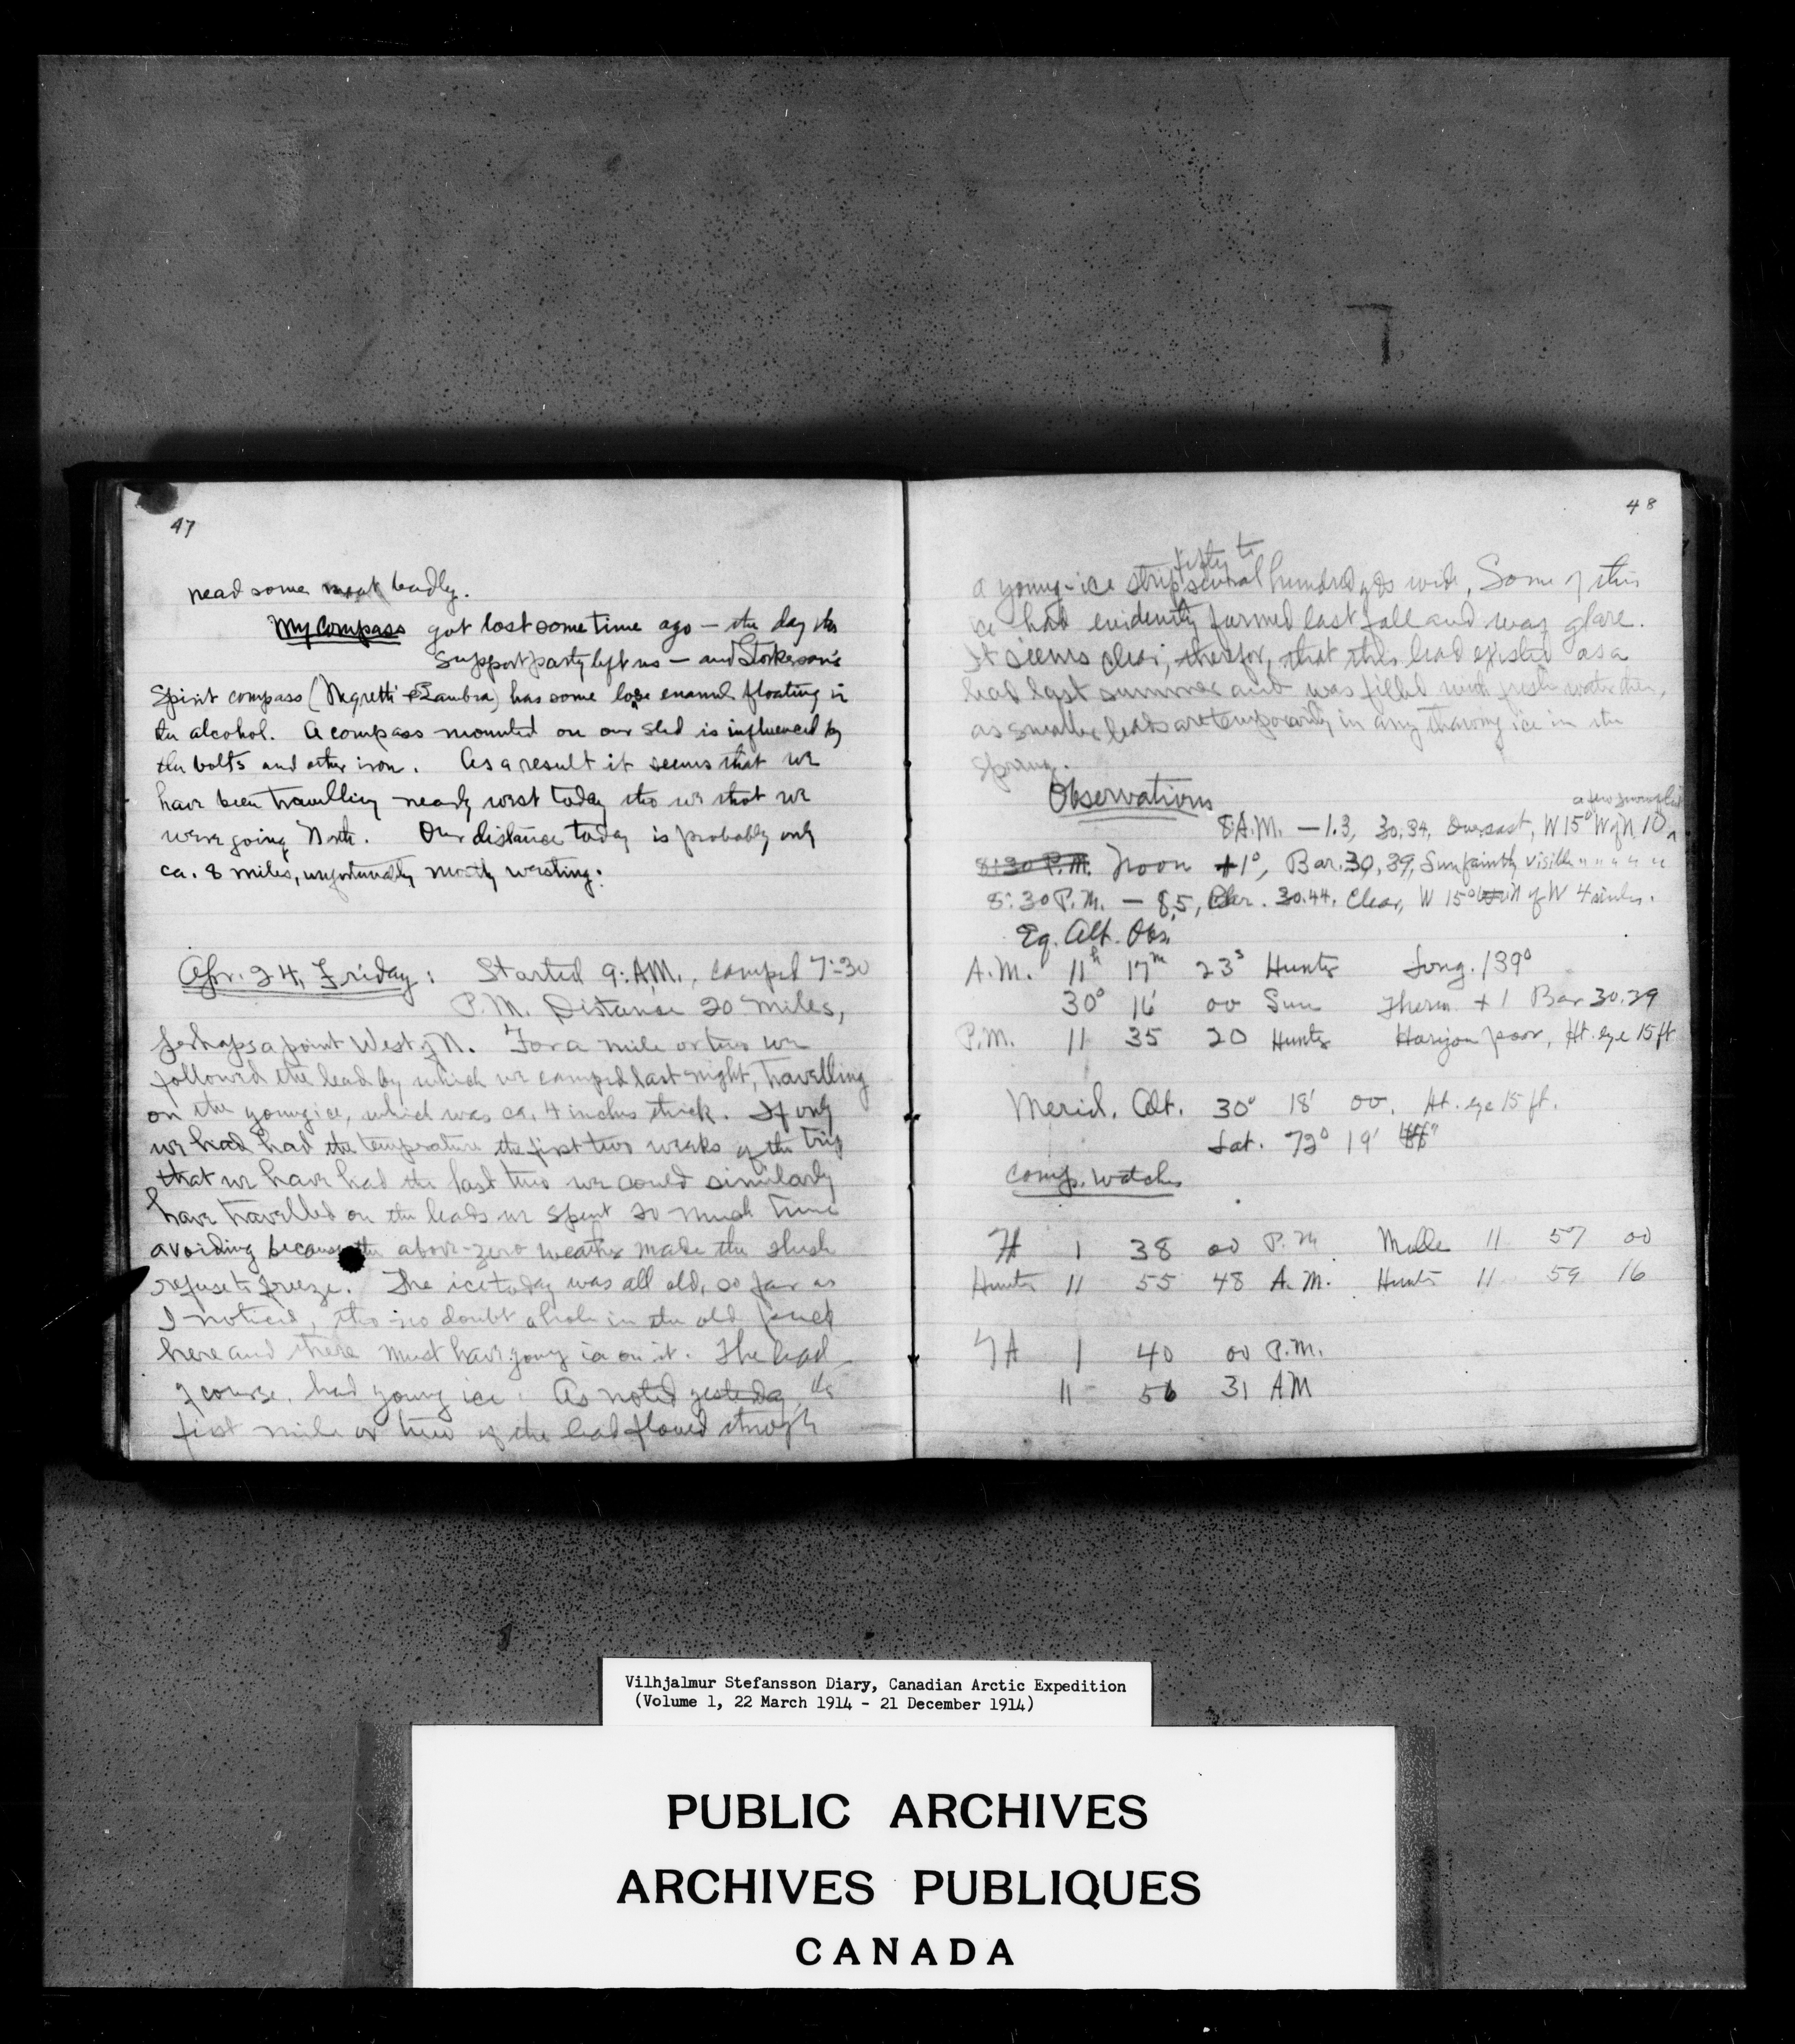 47
need some meat badly.
My Compass got lost some time ago — the day the
support party left us — and Storkerson's
Spirit compass (Negretti & Zambra) has some lose enamel floating in
the alcohol. A compass mounted on our sled is influenced by
the bolts and other iron. As a result it seems that we
have been travelling nearly west today tho we that we
were going North. Our distance today is probably only
ca. 8 miles, unfortunately mostly westing.
Apr. 24, Friday: Started 9: A.M., camped 7:30
P.M. Distance 20 miles,
perhaps a point West of N. For a mile or two we
followed the lead by which we camped last night, travelling
on the young ice, which was ca. 4 inches thick. If only
we had had the temperature the first two weeks of the trip
that we have had the last two we could similarly
have travelled on the leads we spent so much time
avoiding because the above-zero weather made the slush
refuse to freeze. The ice today was all old, so far as
I noticed, tho no doubt a hole in the old pack
here and there must have young ice on it. The lead
of course, had young ice. As noted yesterday, the
first mile or two of the lead flowed through
48
fifty to
a young-ice strip several hundred yds wide. Some of this
ice had evidently formed last fall and was glare.
It seems clear, therefor, that this lead existed as a
lead last summer and was filled with fresh water then,
as smaller leads are temporarily in any thawing ice in the
spring.
Observations
a few snowflakes
8: A.M. — 1.3, 30.34, Overcast, W 15° W of N, 10
8:30 P.M. Noon +1°, Bar. 30.39, Sun faintly visible " " " " "
8:30 P.M. — 8.5, Bar. 30.44. Clear, W 15° N of W 4 miles.
Eq. Alt. Obs.
A.M. 11h 17m 23s Hunter Long. 139°
30° 16' 00 Sun Therm. +1 Bar 30.39
P.M. 11 35 20 Hunter Horizon poor, Ht. eye 15 ft
Merid. Alt. 30° 18' 00. Ht. eye 15 ft.
Lat. 72° 19'
Comp. watches
H 1 38 00 P.M. 11 57 00
Hunter 11 55 48 A.M. Hunter 11 59 16
1 40 00 P.M.
11 56 31 AM
Vilhjalmur Stefansson Diary, Canadian Arctic Expedition
(Volume 1, 22 March 1914 - 21 December 1914)
PUBLIC ARCHIVES
ARCHIVES PUBLIQUES
CANADA